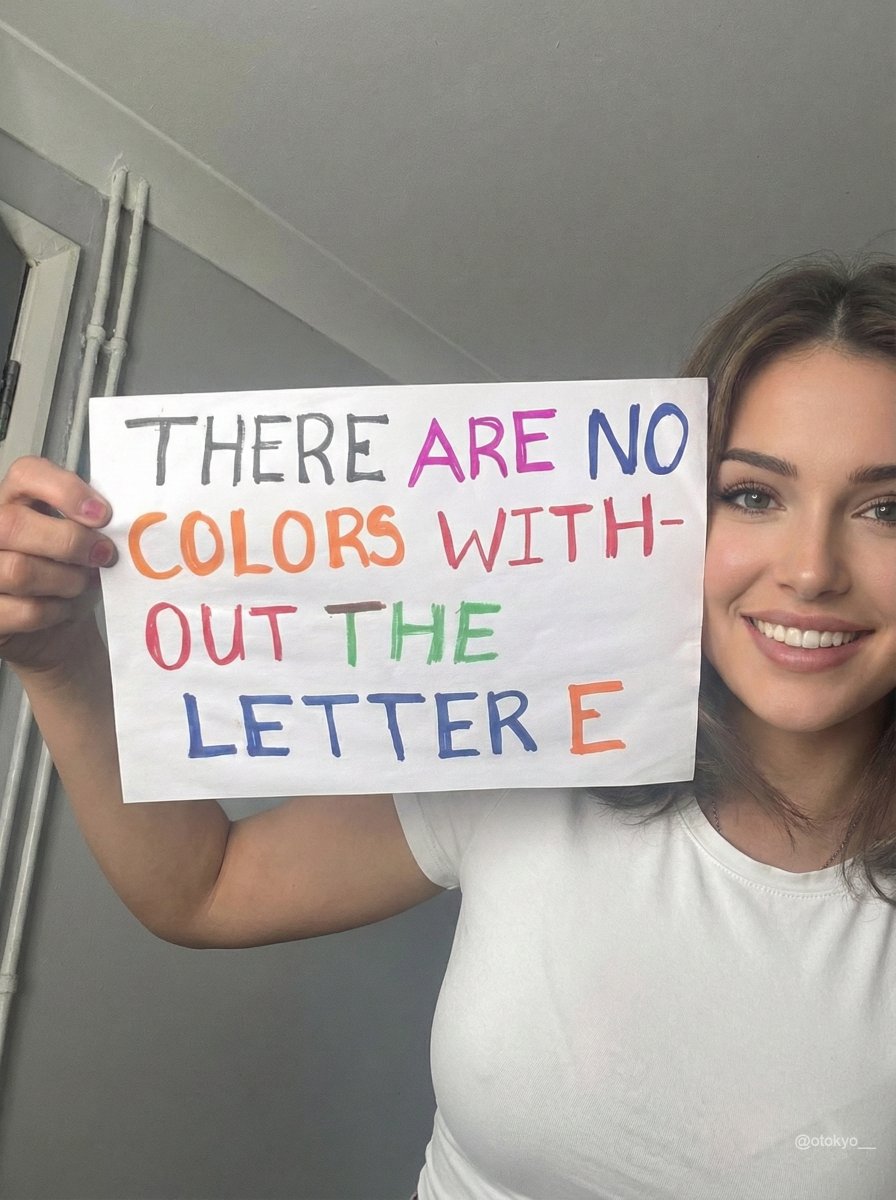 THERE ARE NO
COLORS WITH-
OUT THE
LETTER E
@otokyo__